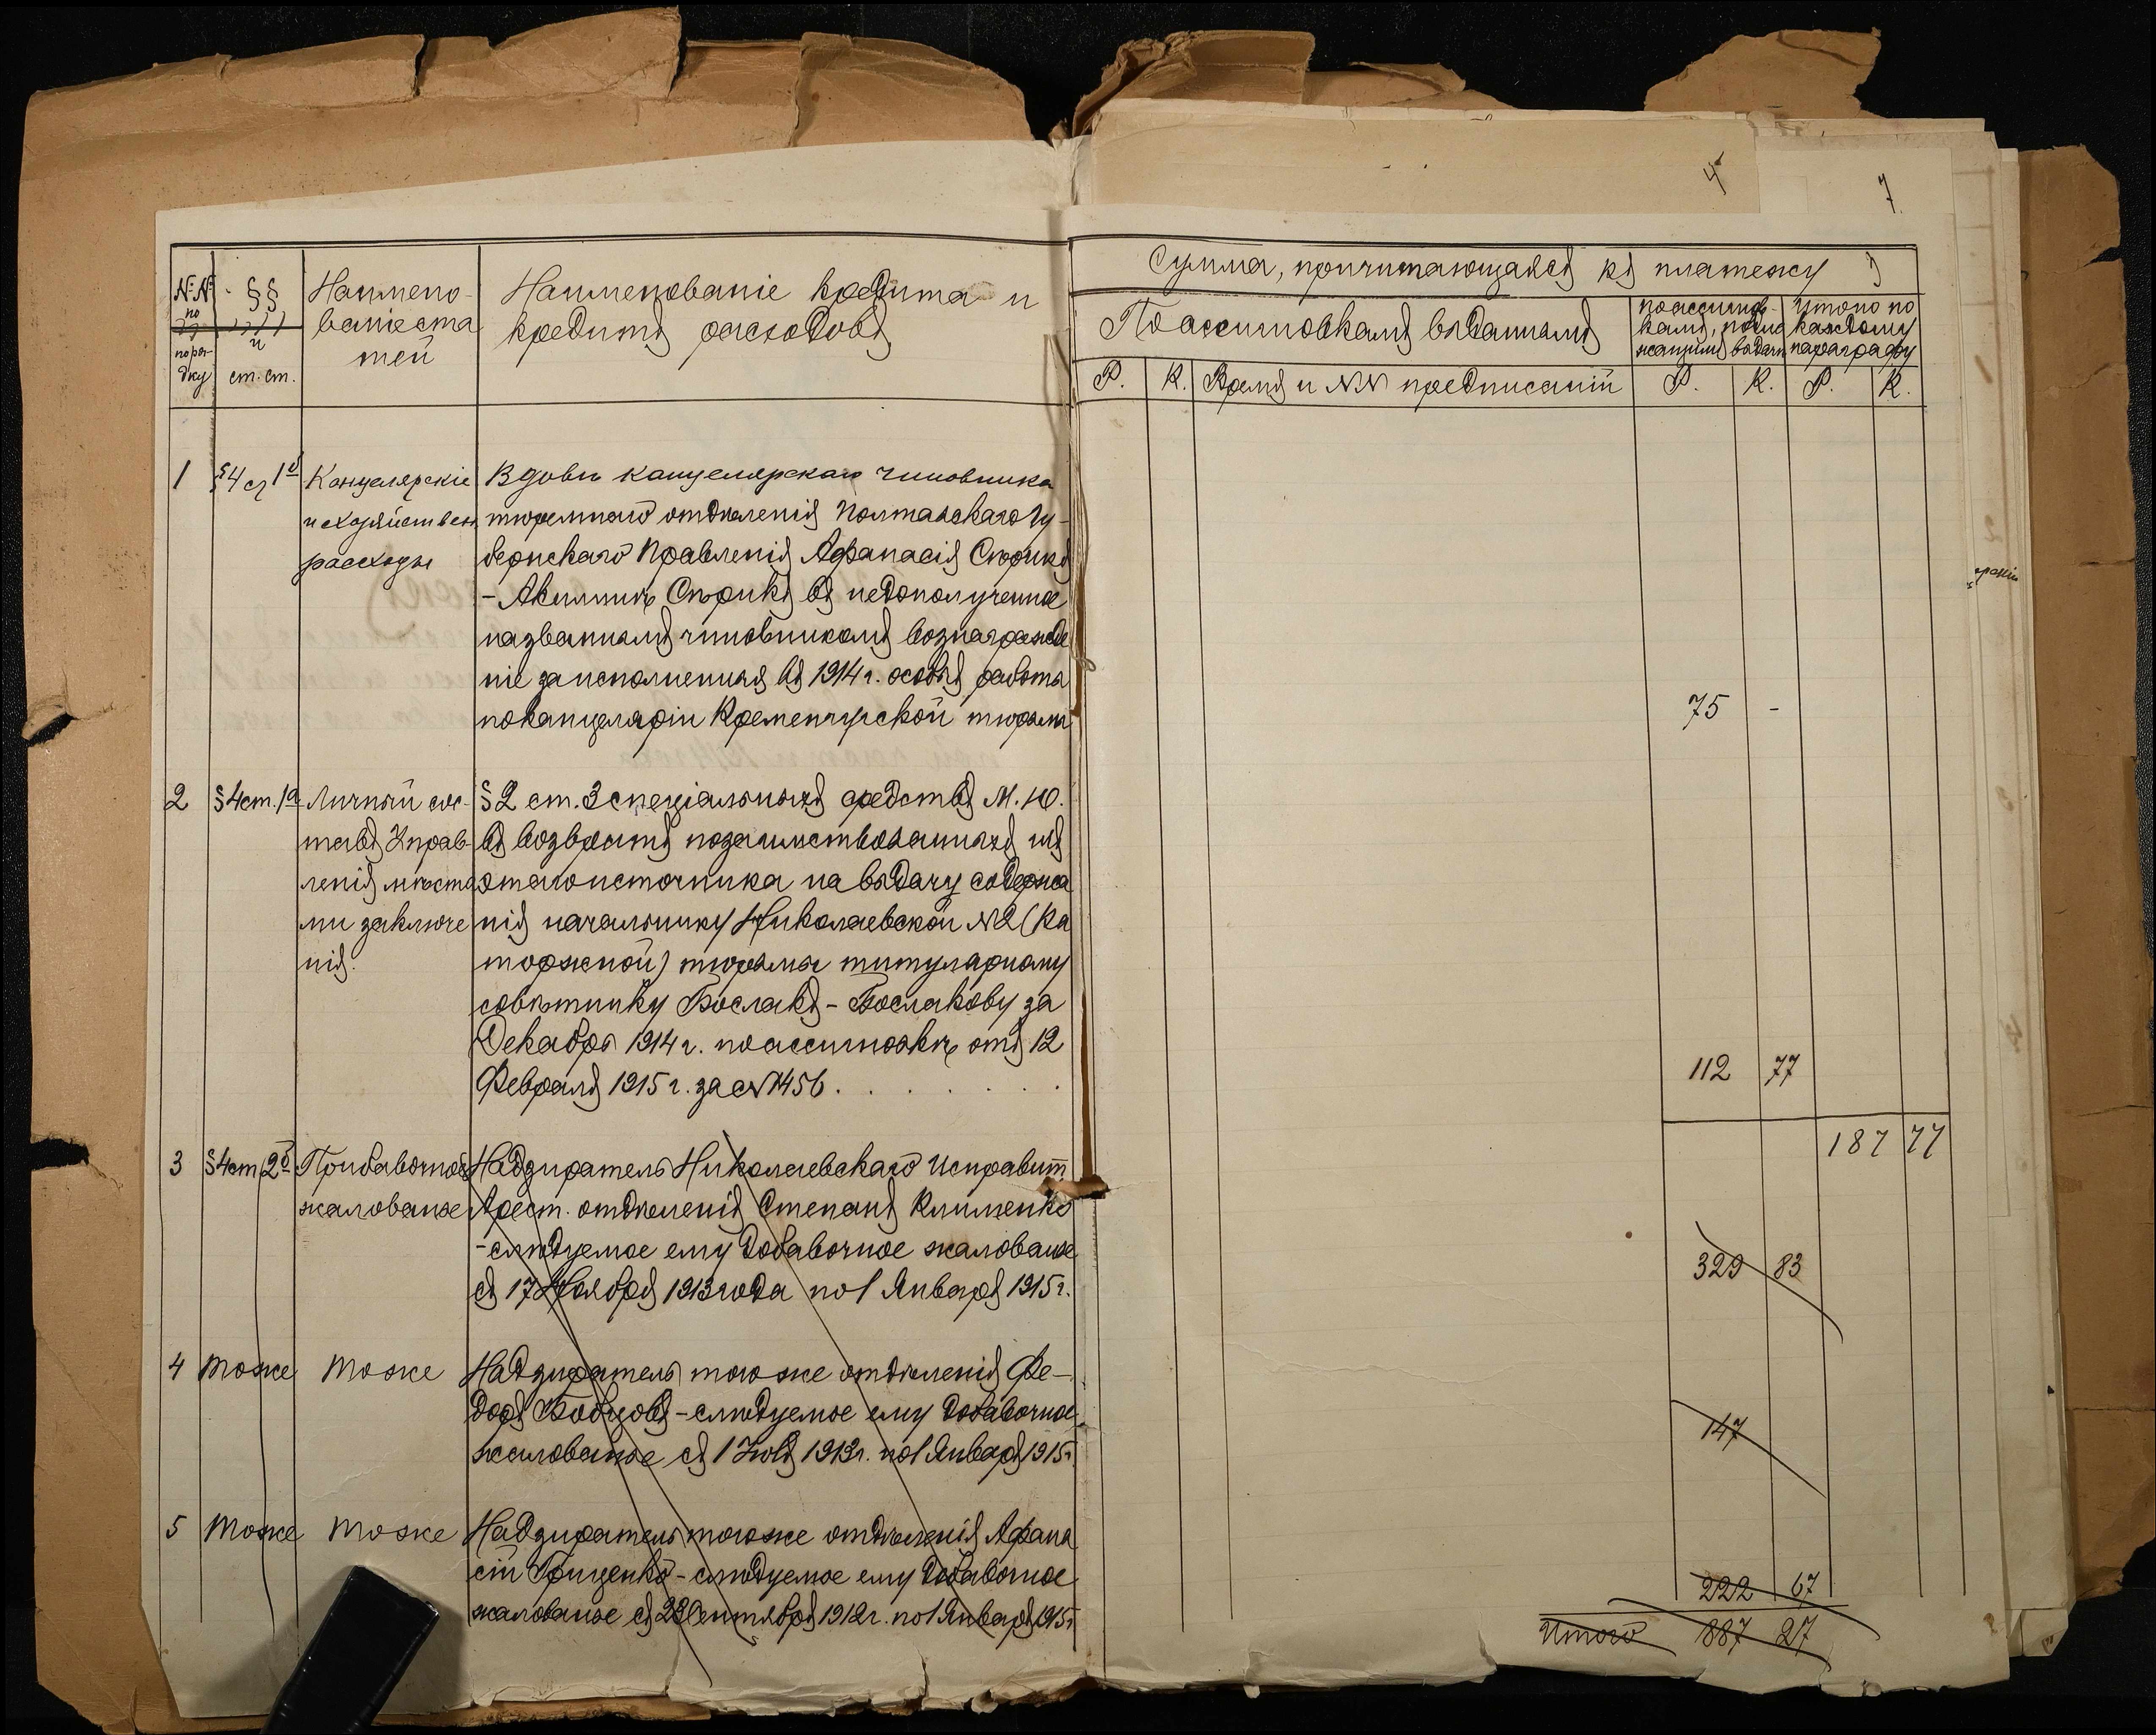 4
7
№№ по порядку
§§ и ст. ст.
Наимено-
ваніе ста
тей
Наименованіе кредита и
кредитъ расходовъ
Сумма, причитающаяся къ платежу
По ассигновкамъ выданнымъ
по ассигнов-
камъ, подле
жащимъ выдачѣ
Итого по
каждому
параграфу
Р. К. Время и №№ предписаній Р. К. Р. К.
1 §4 ст 1б Канцелярскіе Вдовѣ канцелярскаго чиновника
и хозяйствен тюремнаго отдѣленія Полтавскаго Гу-
расходы бернскаго Правленія Афанасія Сѣрикъ
- Акилинѣ Сѣрикъ въ недополученное
названнымъ чиновникомъ вознагражде
ніе за исполненныя въ 1914 г. особыя работы
по канцеляріи Кременчугской тюрьмы 75 -
2 §4 ст. 1а Личный сос- §2 ст. 3 спеціальныхъ средствъ М. Ю.
тавъ Управ- въ возвратъ позаимствованныхъ изъ
ленія мѣста этого источника на выдачу содержа
ми заключе нія начальнику Николаевской №2 (Ка
нія. торжной) тюрьмы титулярному
совѣтнику Бослакъ-Бослакову за
Декабрь 1914 г. по ассигновкѣ отъ 12
Февраля 1915 г. за №1456. 112 77
187 77
3 §4 ст 2б Прибавочное Надзиратель Николаевскаго Исправит
жалованье Арест. отдѣленія Степанъ Клименко
- слѣдуемое ему добавочное жалованье 329 83
съ 17 Ноября 1913 года по 1 Января 1915 г.
4 Тоже Тоже Надзиратель того же отдѣленія Фе-
доръ Бобцовъ - слѣдуемое ему добавочное 147
жалованье съ 1 1913 г. по 1 Января 1915 г.
5 Тоже Тоже Надзиратель того же отдѣленія Афана
сій Грищенко - слѣдуемое ему добавочное 222 67
жалованье съ Сентября 1912 г. по 1 Января 1915 г.
Итого 887 27